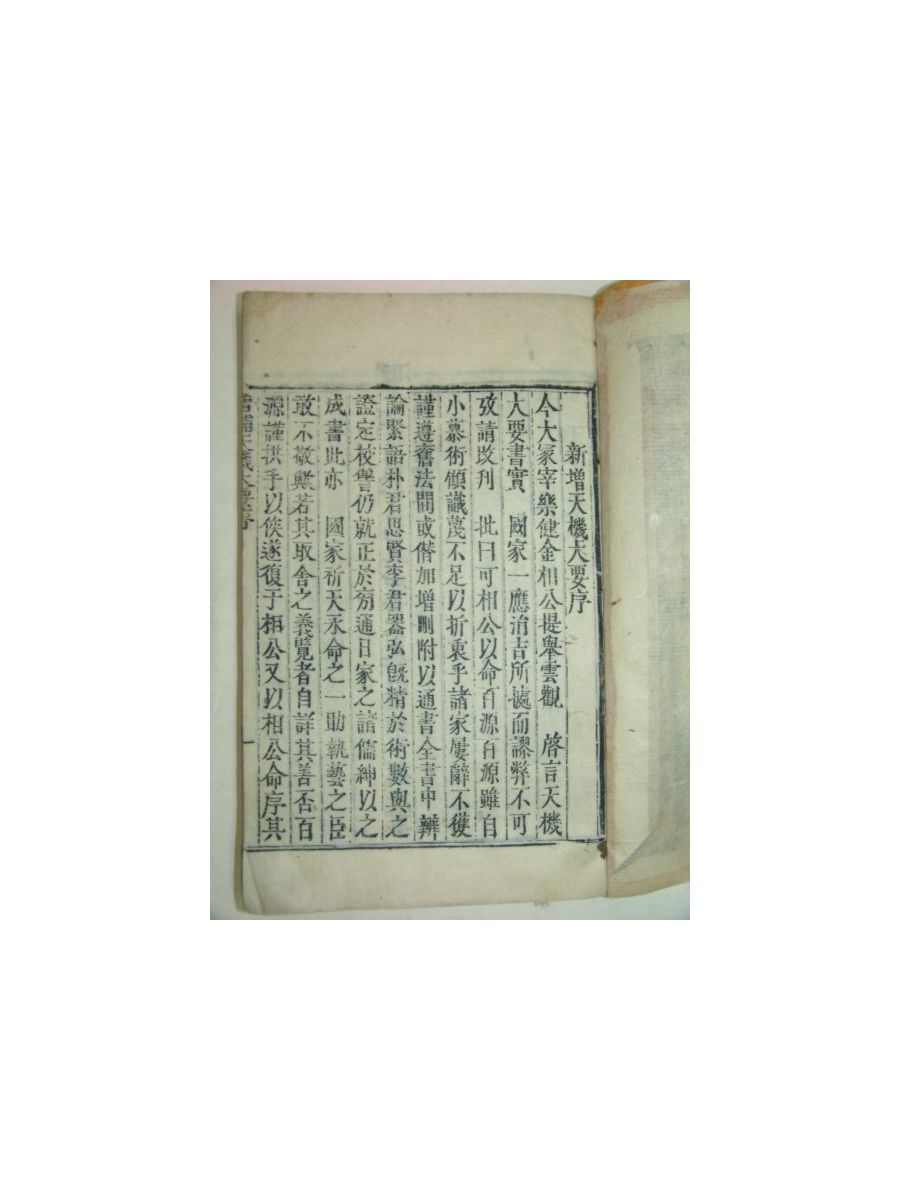 新增天機大要序
今大冢宰樂健金相公提舉雲觀 啓言天機
大要書實 國家一應涓吉所據而謬弊不可
攷請改刊 批曰可相公以命百源百源雖自
小慕術傾識蔑不足以折衷乎諸家屢辭不獲
謹遵舊法間或僭加增刪附以通書全書中辨
論緊語朴君思賢李君器弘旣精於術數與之
證定校讐仍就正於旁通日家之諸儒紳以之
成書此亦 國家祈天永命之一助執藝之臣
敢不敬歟若其取舍之義覽者自詳其善否百
源謹拱手以俟遂復于相公又以相公命序其
增補天機大要序 一